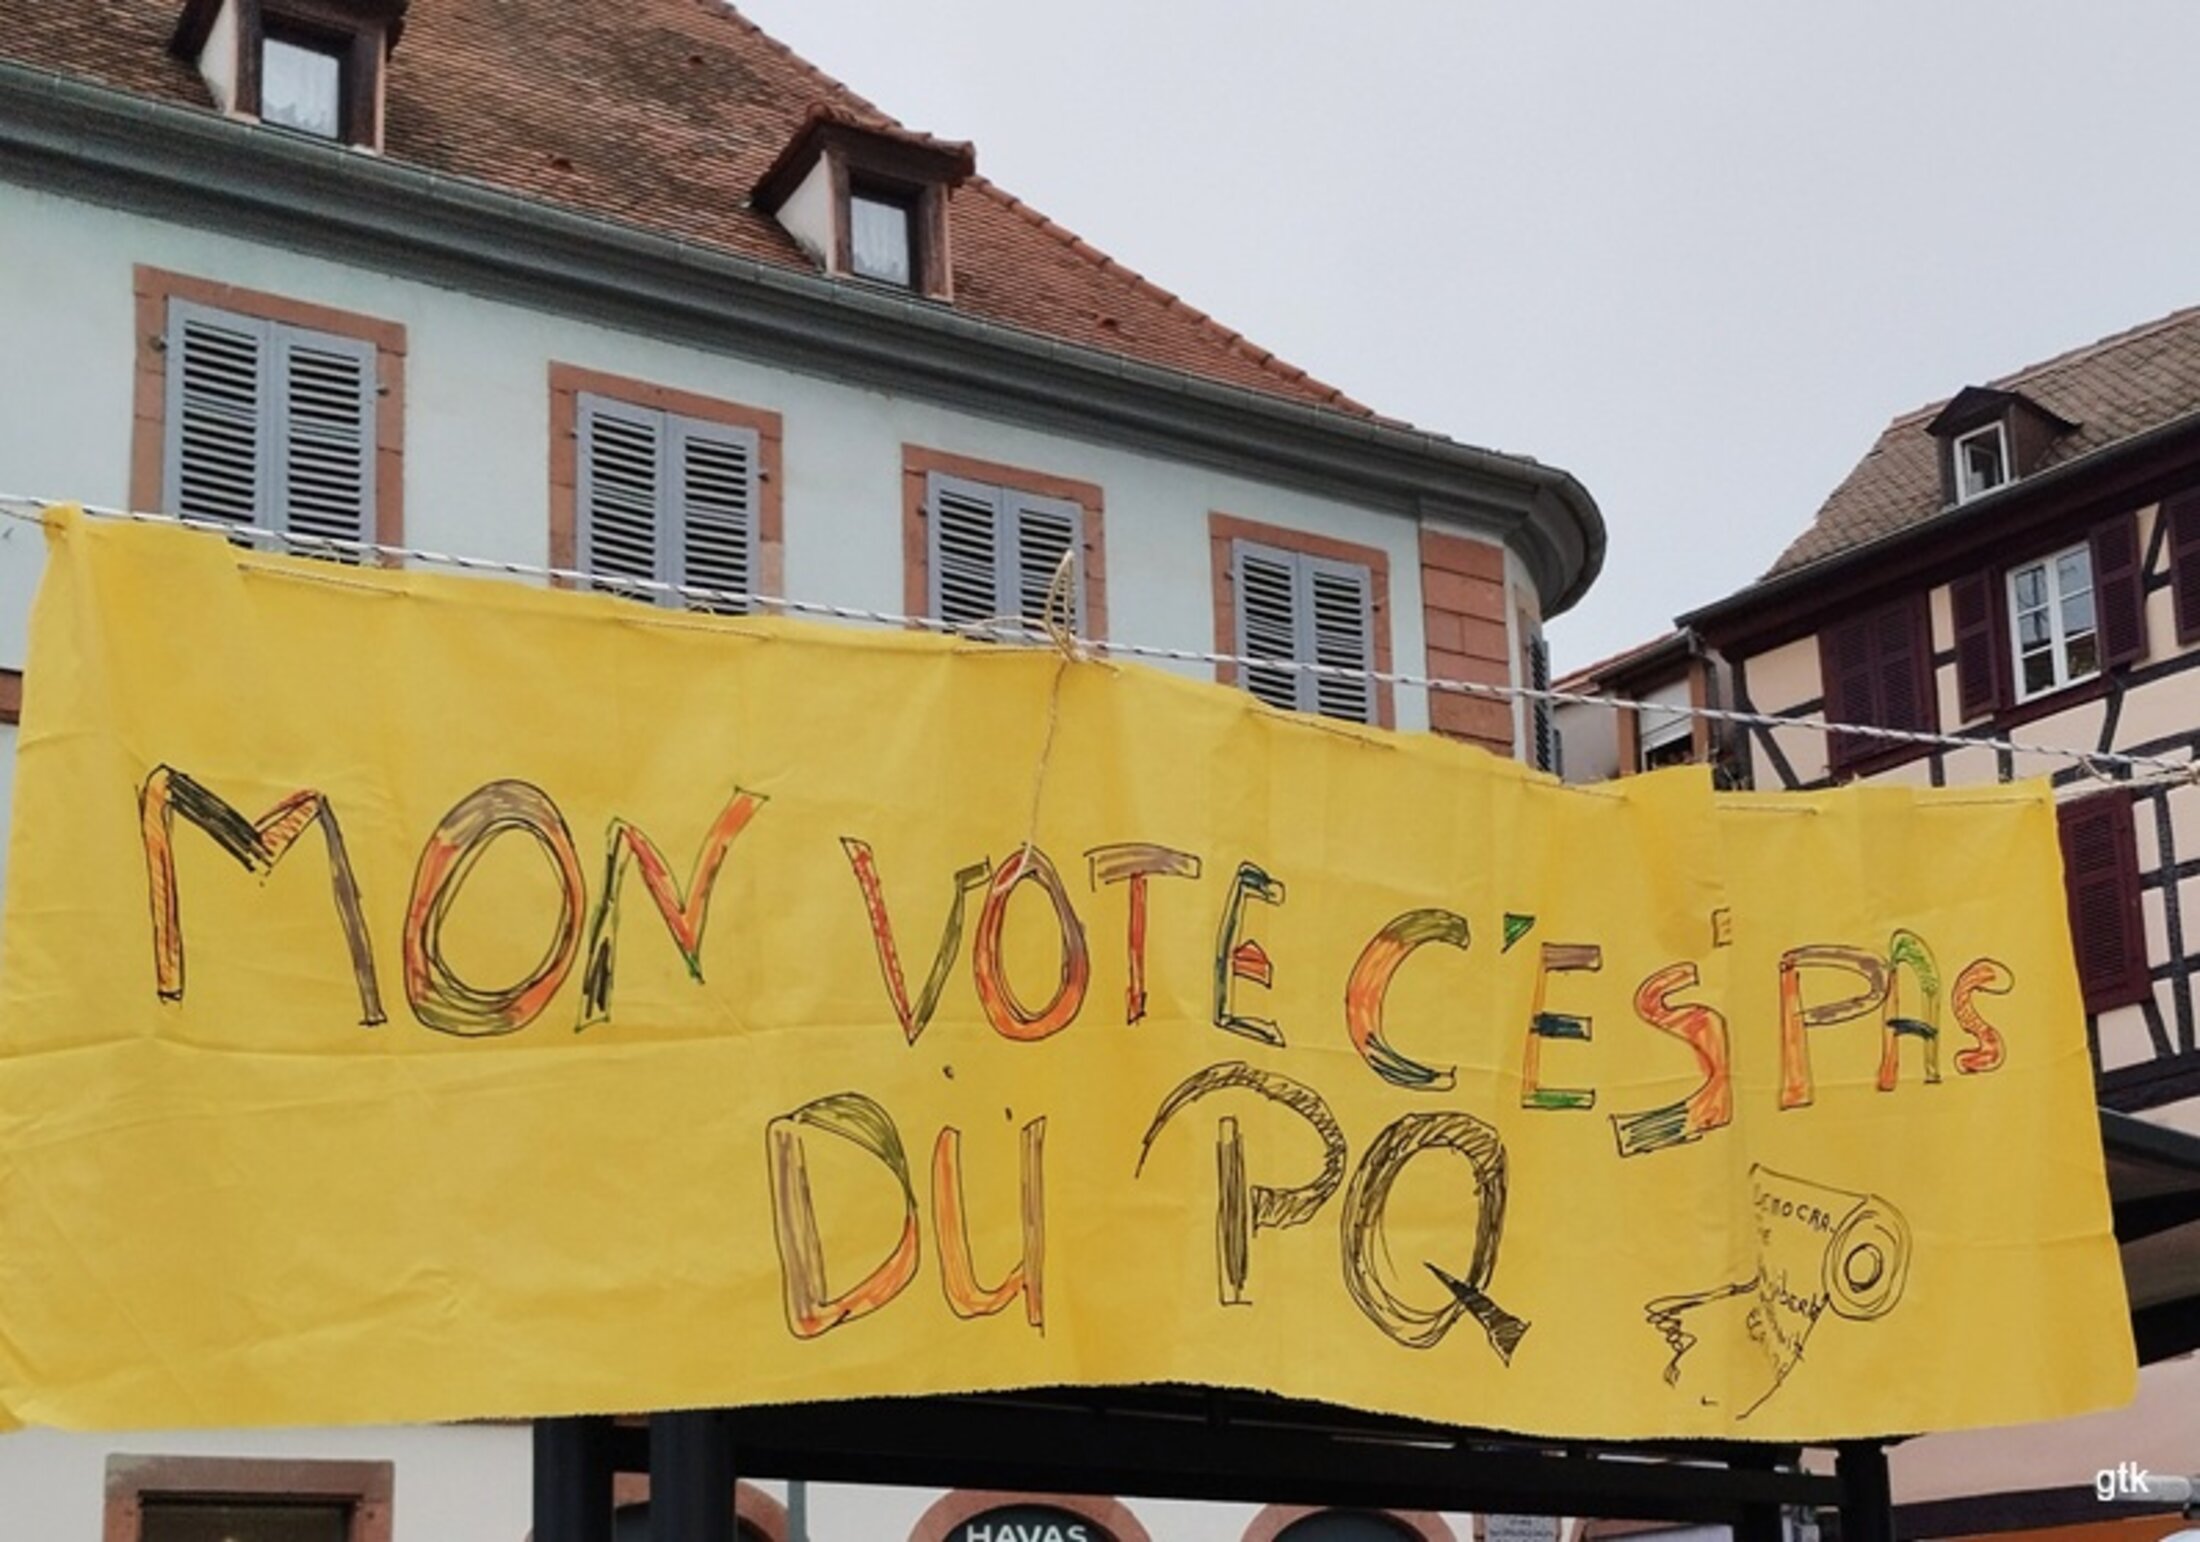 MON VOTE C'ES PAS
DU PQ
DEMOCRA-
HAVAS
gtk